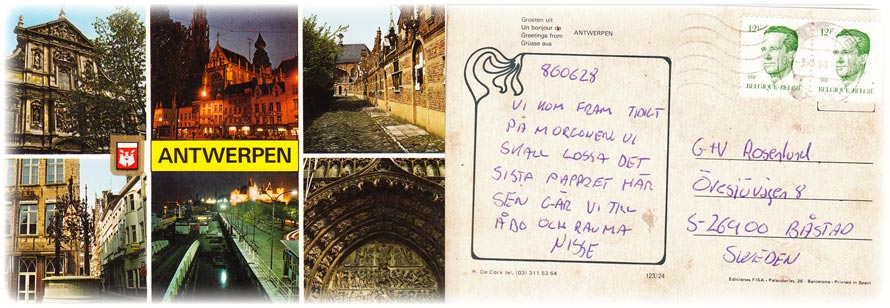 ANTWERPEN
Groeten uit
Un bonjour de
Greetings from
Grüsse aus
ANTWERPEN
860628
VI KOM FRAM TIDIGT
PÅ MORGONEN. VI
SKALL LOSSA DET
SISTA PAPPRET HÄR
SEN GÅR VI TILL
ÅBO OCH RAUMA
NISSE
12F
12F
BELGIQUE-BELGIË
BELGIQUE-BELGIË
G+V Rosenlund
Öresjövägen 8
S-26400 BÅSTAD
SWEDEN
De Cock tel. (03) 311 53 64
123/24
Ediciones FISA - Palaudarias, 26 - Barcelona - Printed in Spain